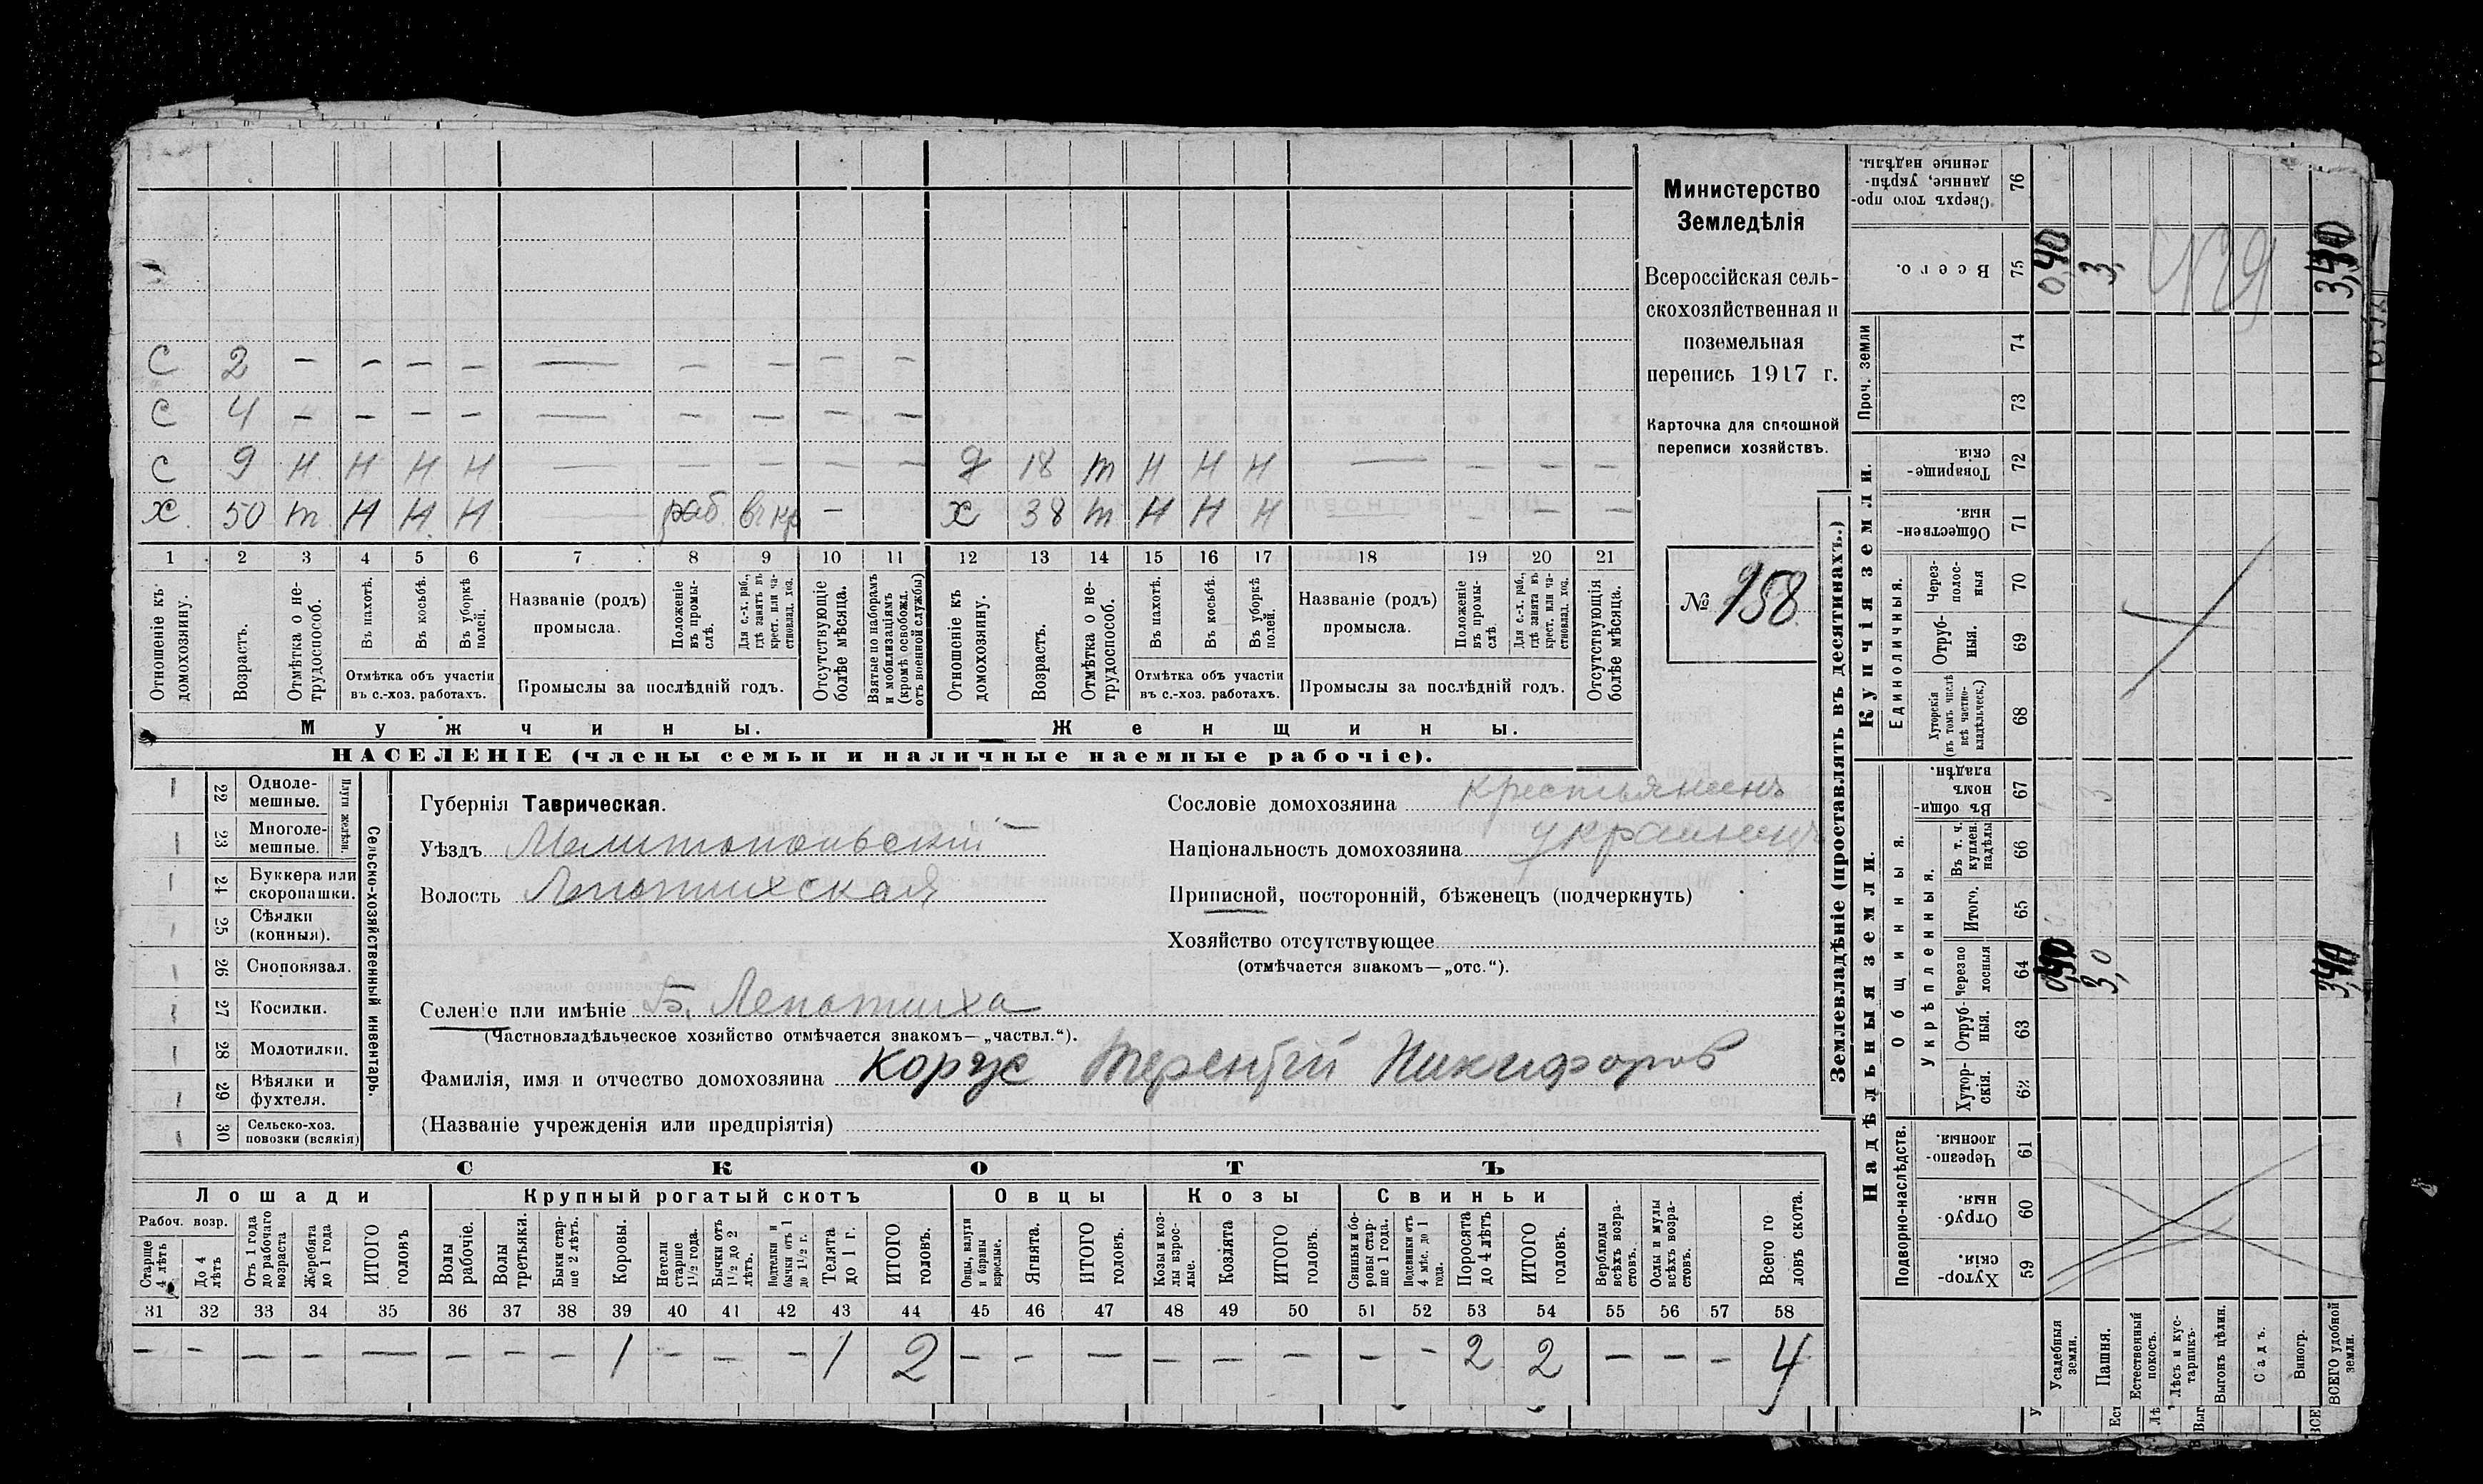 С 2 — — — — — — — — —
С 4 — — — — — — — — —
С 9 Н Н Н Н — — — — — д 18 т Н Н Н — — — —
Х 50 т Н Н Н — раб. въ кр — Х 38 т Н Н Н — — — —
1 2 3 4 5 6 7 8 9 10 11 12 13 14 15 16 17 18 19 20 21
Отношеніе къ домохозяину.
Возрастъ.
Отмѣтка о не-
трудоспособ.
Въ пахотѣ.
Въ косьбѣ.
Въ уборкѣ
полей.
Отмѣтка объ участіи
въ с.-хоз. работахъ.
Названіе (родъ)
промысла.
Положеніе
въ промы-
слѣ.
Для с.-х. раб.,
гдѣ занятъ въ
крест. или ча-
стновлад. хоз.
Промыслы за послѣдній годъ.
Отсутствующіе
болѣе мѣсяца.
Взятые по наборамъ
и мобилизаціямъ
(кромѣ освобожд.
отъ военной службы)
Отношеніе къ
домохозяину.
Возрастъ.
Отмѣтка о не-
трудоспособ.
Въ пахотѣ.
Въ косьбѣ.
Въ уборкѣ
полей.
Отмѣтка объ участіи
въ с.-хоз. работахъ.
Названіе (родъ)
промысла.
Положеніе
въ промы-
слѣ.
Для с.-х. раб.,
гдѣ занята въ
крест. или ча-
стновлад. хоз.
Промыслы за послѣдній годъ.
Отсутствующія
болѣе мѣсяца.
Мужчины.
Женщины.
НАСЕЛЕНІЕ (члены семьи и наличные наемные рабочіе).
Министерство
Земледѣлія
Всероссійская сель-
скохозяйственная и
поземельная
перепись 1917 г.
Карточка для сплошной
переписи хозяйствъ.
№ 158
22 Одноле-
мешные.
23 Многоле-
мешные.
Плуги желѣзн.
24 Буккера или
скоропашки.
25 Сѣялки
(конныя).
26 Сноповязал.
27 Косилки.
28 Молотилки.
29 Вѣялки и
фухтеля.
30 Сельско-хоз.
повозки (всякія)
Сельско-хозяйственный инвентарь.
Губернія Таврическая.
Уѣздъ Мелитопольскій
Волость Лепатихская
Селеніе или имѣніе Б. Лепатиха
(Частновладѣльческое хозяйство отмѣчается знакомъ—„частвл.“).
Фамилія, имя и отчество домохозяина Корж Терентій Никифоров
(Названіе учрежденія или предпріятія)
Сословіе домохозяина крестьянинъ
Національность домохозяина украинецъ
Приписной, посторонній, бѣженецъ (подчеркнуть)
Хозяйство отсутствующее
(отмѣчается знакомъ—„отс.“).
СКОТЪ
Лошади
Крупный рогатый скотъ
Овцы
Козы
Свиньи
Рабоч. возр.
Старше
4 лѣтъ
До 4
лѣтъ
Отъ 1 года
до рабочаго
возраста
Жеребята
до 1 года
ИТОГО
головъ
Волы
рабочіе.
Волы
третьяки.
Быки стар-
ше 2 лѣтъ.
Коровы.
Нетели
старше
1½ года.
Бычки отъ
1½ до 2
лѣтъ.
Подтелки и
бычки отъ 1
до 1½ г.
Телята
до 1 г.
ИТОГО
головъ.
Овцы, валухи
и бараны
взрослые.
Ягнята.
ИТОГО
головъ.
Козы и коз-
лы взрос-
лые.
Козлята
ИТОГО
головъ.
Свиньи и бо-
ровы стар-
ше 1 года.
Подсвинки отъ
4 мѣс. до 1
года.
Поросята
до 4 лѣтъ
ИТОГО
головъ.
Верблюды
всѣхъ возра-
стовъ.
Ослы и мулы
всѣхъ возра-
стовъ.
Всего го
ловъ скота.
31 32 33 34 35 36 37 38 39 40 41 42 43 44 45 46 47 48 49 50 51 52 53 54 55 56 57 58
— — — — — — — — 1 — — — 1 2 — — — — — — — — 2 2 — — — 4
Землевладѣніе (проставлять въ десятинахъ.)
Купчія земли.
Надѣльныя земли.
Сверхъ того про-
данные, укрѣп-
ленные надѣлы.
76
Всего.
75
0,40
3,
№9
Проч. земли
74
73
Товарище-
скія
72
Обществен-
ныя
71
Единоличныя.
Через-
полос-
ныя
70
Отруб-
ныя.
69
Хуторскія
(въ томъ числѣ
всѣ частно-
владѣльческ.)
68
Общинныя.
Въ общин-
номъ
владѣн.
67
Укрѣпленныя.
Въ т. ч.
куплен.
надѣлы
66
Итого.
65
Черезпо
лосныя
64
3,0
Отруб-
ныя.
63
Хутор-
скія.
62
Подворно-наслѣдств.
Черезпо-
лосныя.
61
Отруб-
ныя.
60
Хутор-
скія.
59
Усадебныя
земли.
Пашня.
Естественный
покосъ.
Лѣсъ и кус-
тарникъ.
Выгонъ цѣлин.
Садъ.
Виногр.
ВСЕГО удобной
земли.